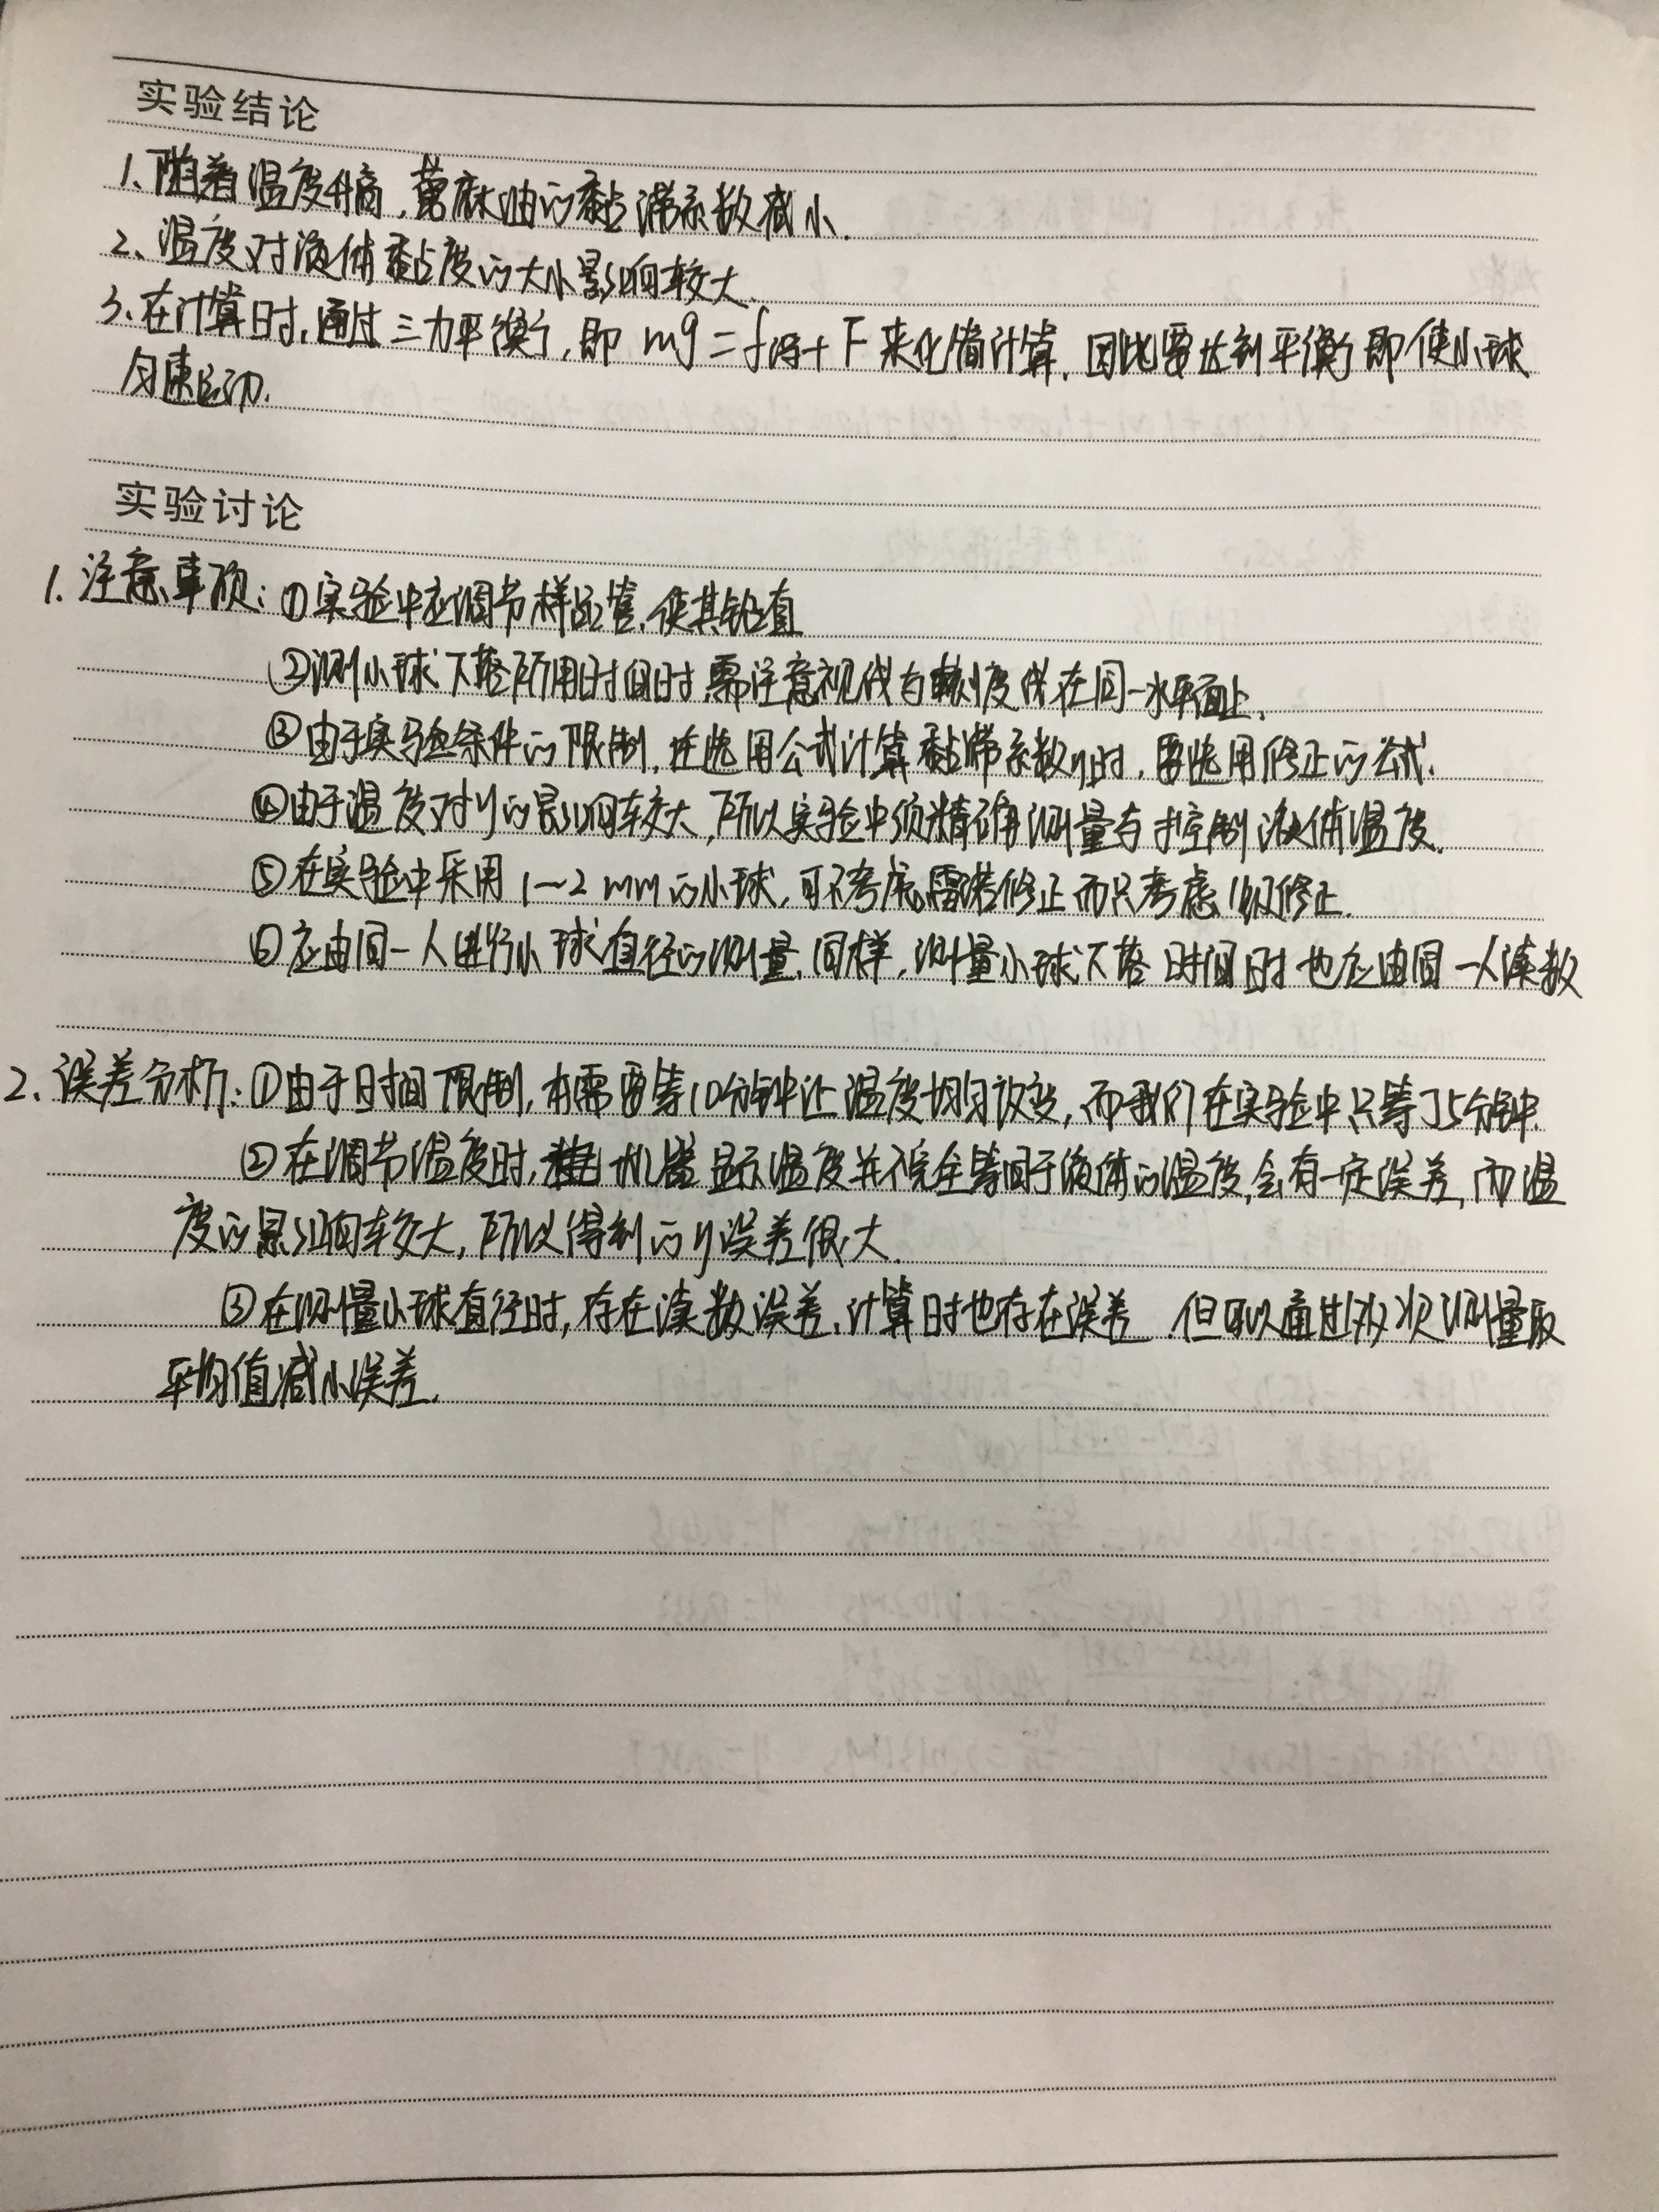 实验结论
1、随着温度升高,蓖麻油的黏滞系数减小.
2、温度对液体黏度的大小影响较大.
3.在计算时,通过三力平衡,即 mg=f浮+F 来化简计算.因此要达到平衡即使小球
匀速运动.
实验讨论
1.注意事项:①实验中应调节样品管,使其铅直
②测小球下落所用时间时,需注意视线与刻度线在同一水平面上.
③由于实验条件的限制,在选用公式计算黏滞系数η时,要选用修正的公式.
④由于温度对η的影响较大,所以实验中须精确测量与控制液体温度.
⑤在实验中采用1~2mm的小球,可不考虑雷诺修正而只考虑1级修正.
⑥应由同一人进行小球直径的测量,同样,测量小球下落时间时也应由同一人读数
2、误差分析:①由于时间限制,本需要等10分钟让温度均匀改变,而我们在实验中只等了5分钟.
②在调节温度时,机器显示温度并不完全等同于液体的温度,会有一定误差,而温
度的影响较大,所以得到的η误差很大.
③在测量小球直径时,存在读数误差,计算时也存在误差.但可以通过多次测量取
平均值减小误差.